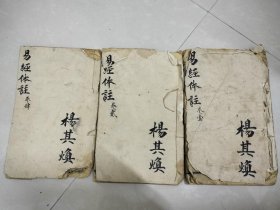 易經体註
卷壹
楊其煥
易經体註
卷貳
楊其煥
易經体註
楊其煥